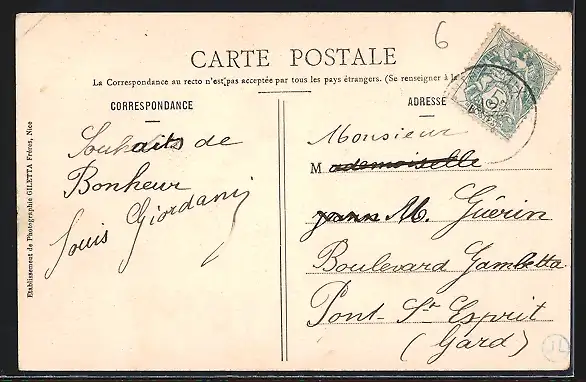 6
CARTE POSTALE
La Correspondance au recto n'est pas acceptée par tous les pays étrangers. (Se renseigner à la
CORRESPONDANCE
Souhaits de
Bonheur
Louis Giordani
ADRESSE
Monsieur
Mademoiselle
M. Guérin
Boulevard Gambetta
Pont-St Esprit
(Gard)
Etablissement de Photographie GILETTA Frères, Nice
JL